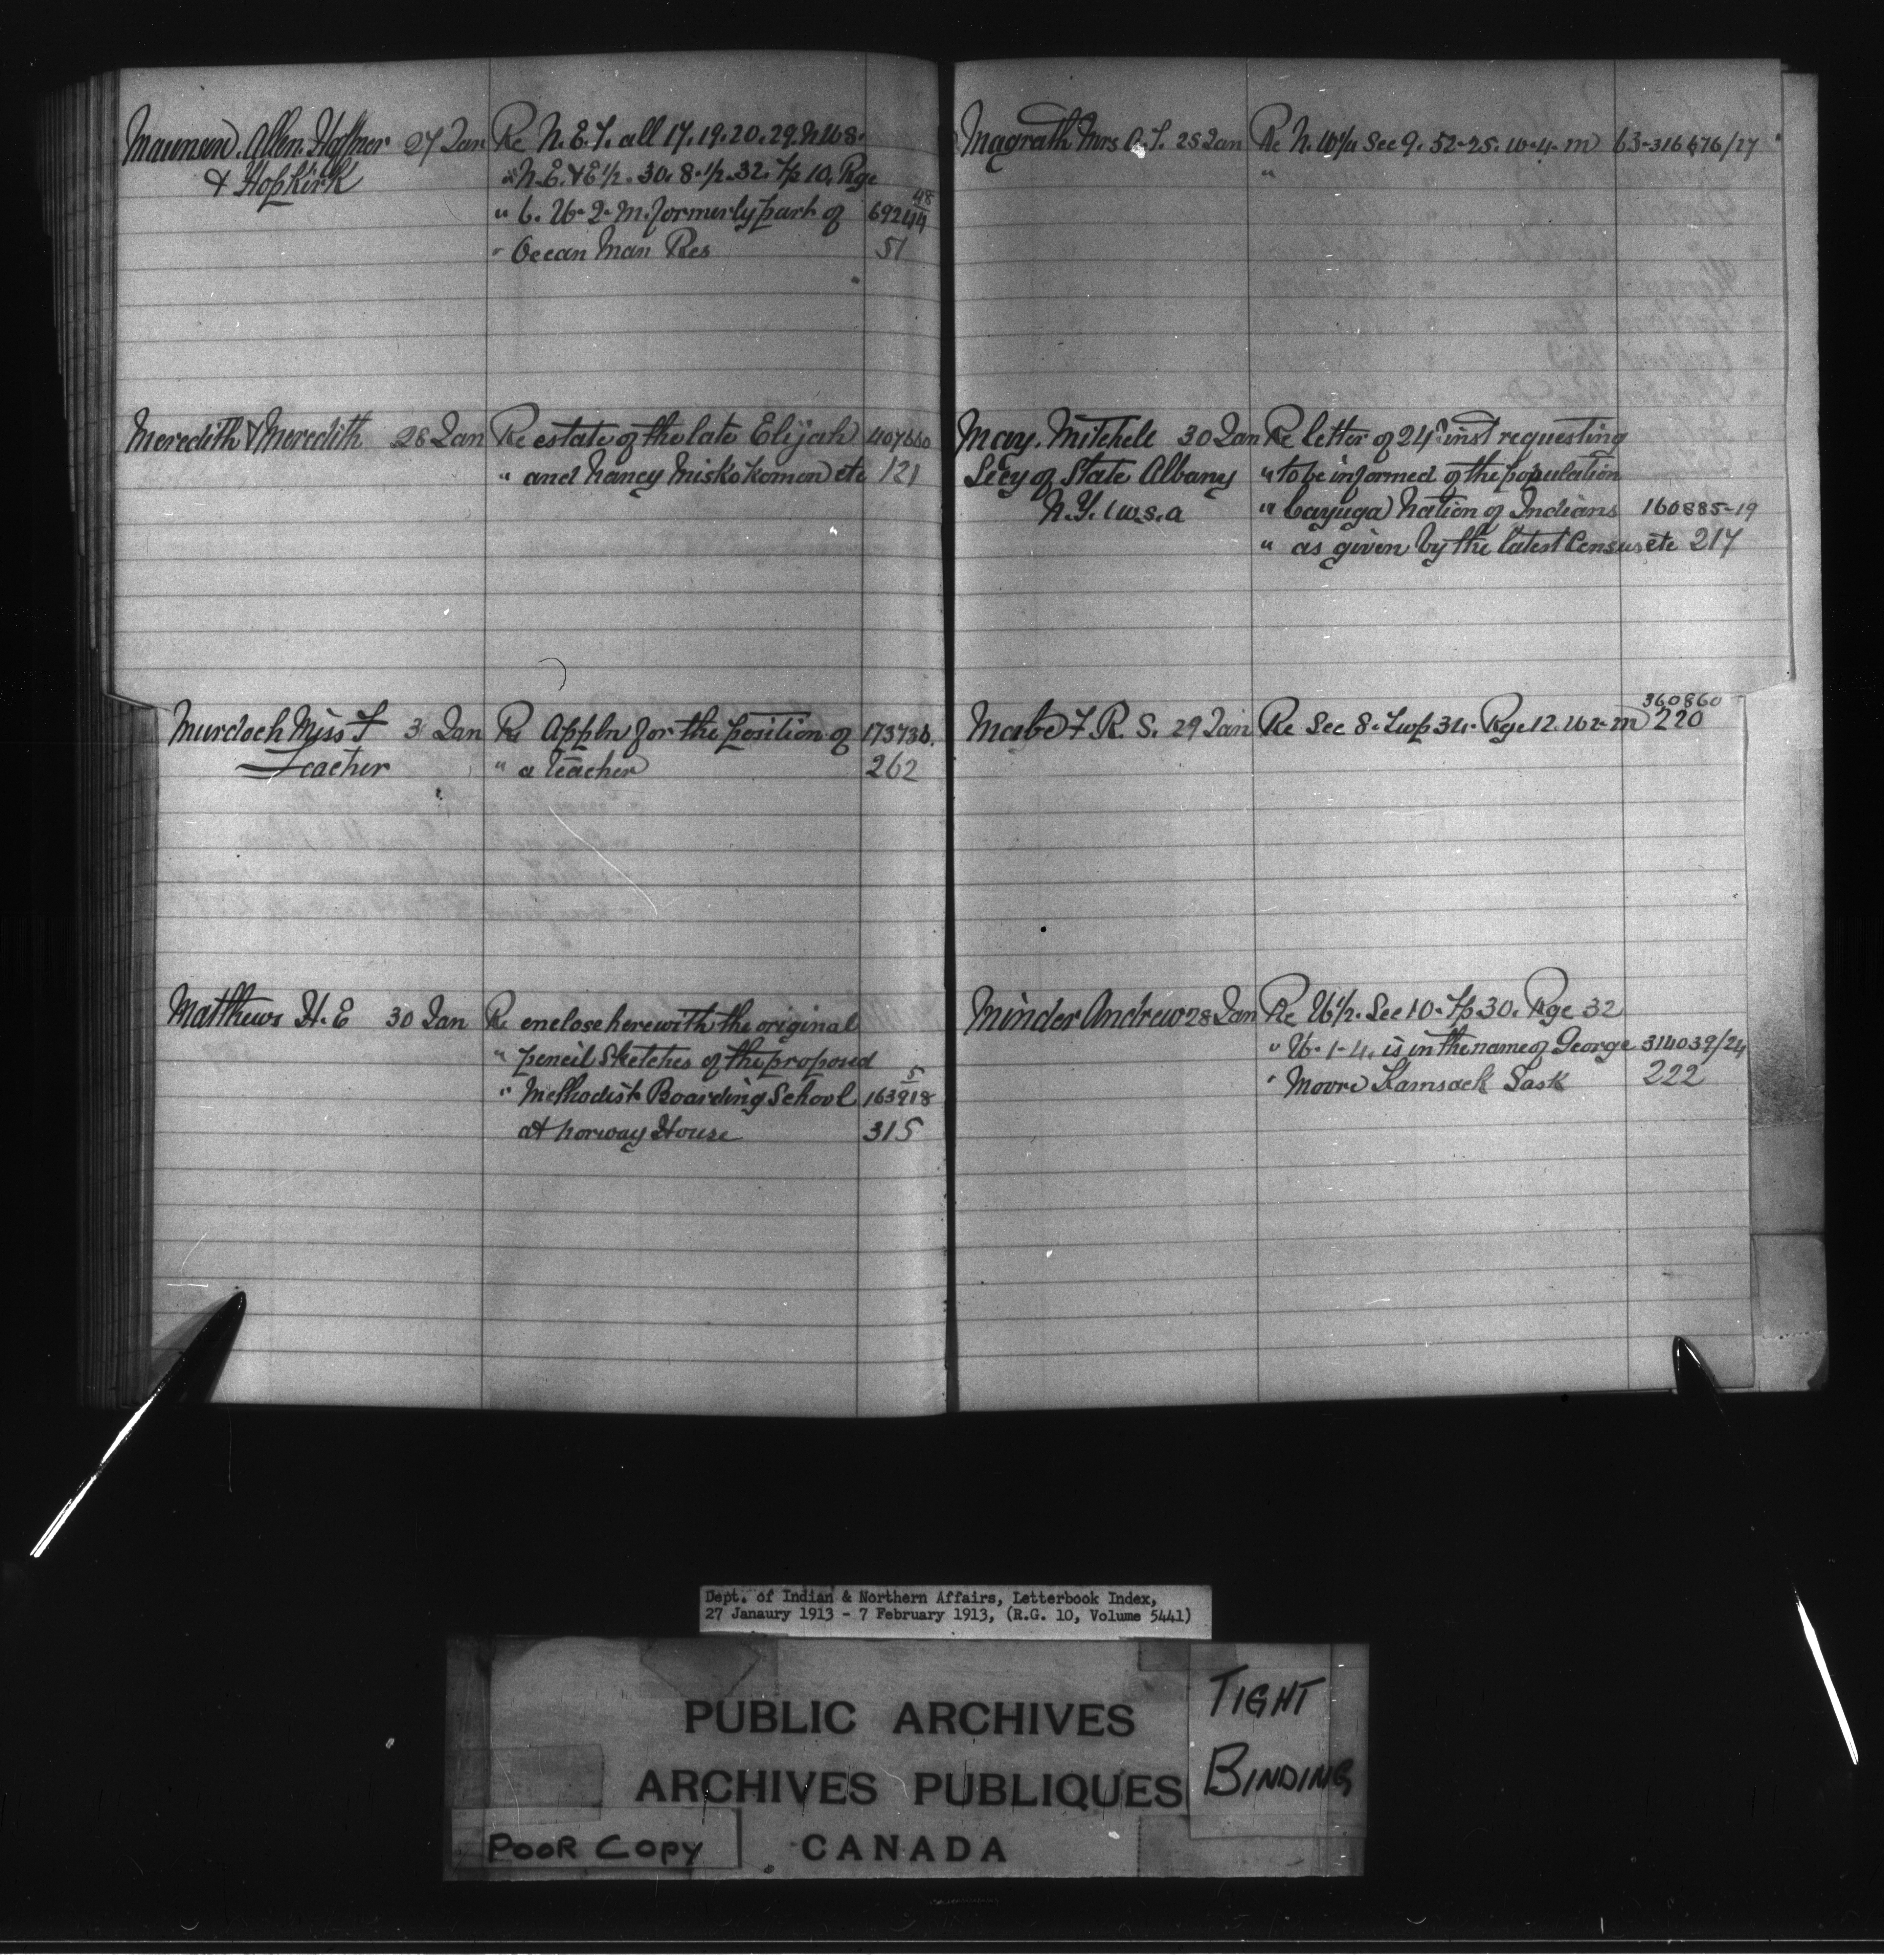 Maunsen, Allen, Hoffner 27 Jan Re N.E. 7. all 17. 19. 20. 29. N 1/2 8.
& Hopkirk " N.E. & E 1/2. 30. S. 1/2. 32. Tp 10. Rge
" 6. W. 2. M. formerly part of 69244 48
" Ocean Man Res 51
Meredith & Meredith 28 Jan Re estate of the late Elijah 407660
" and Nancy Miskokomon etc 121
Murdoch Miss F 3 Jan Re Appln for the position of 173738.
Teacher " a teacher 262
Matthews H. E 30 Jan Re enclose herewith the original
" pencil sketches of the proposed
" Methodist Boarding School 163918 5
at Norway House 315
Magrath Mrs A. J. 25 Jan Re N. W 1/4 Sec 9. 52-25. W-4-M 63-316676/27
"
May, Mitchell 30 Jan Re letter of 24th inst requesting
Secy of State Albany " to be informed of the population
N.Y. U.S.A " Cayuga Nation of Indians 160885-19
" as given by the latest Census etc 217
360860
Mabe F. R. S. 29 Jan Re Sec 8. Twp 34. Rge 12. W 2 M 220
Minder Andrew 28 Jan Re W 1/2. Sec 10. Tp 30. Rge 32
" W. 1-4. is in the name of George 314039/24
" Moore Kamsack Sask 222
Dept. of Indian & Northern Affairs, Letterbook Index,
27 Janaury 1913 - 7 February 1913, (R.G. 10, Volume 5441)
PUBLIC ARCHIVES
ARCHIVES PUBLIQUES
CANADA
TIGHT
BINDING
POOR COPY